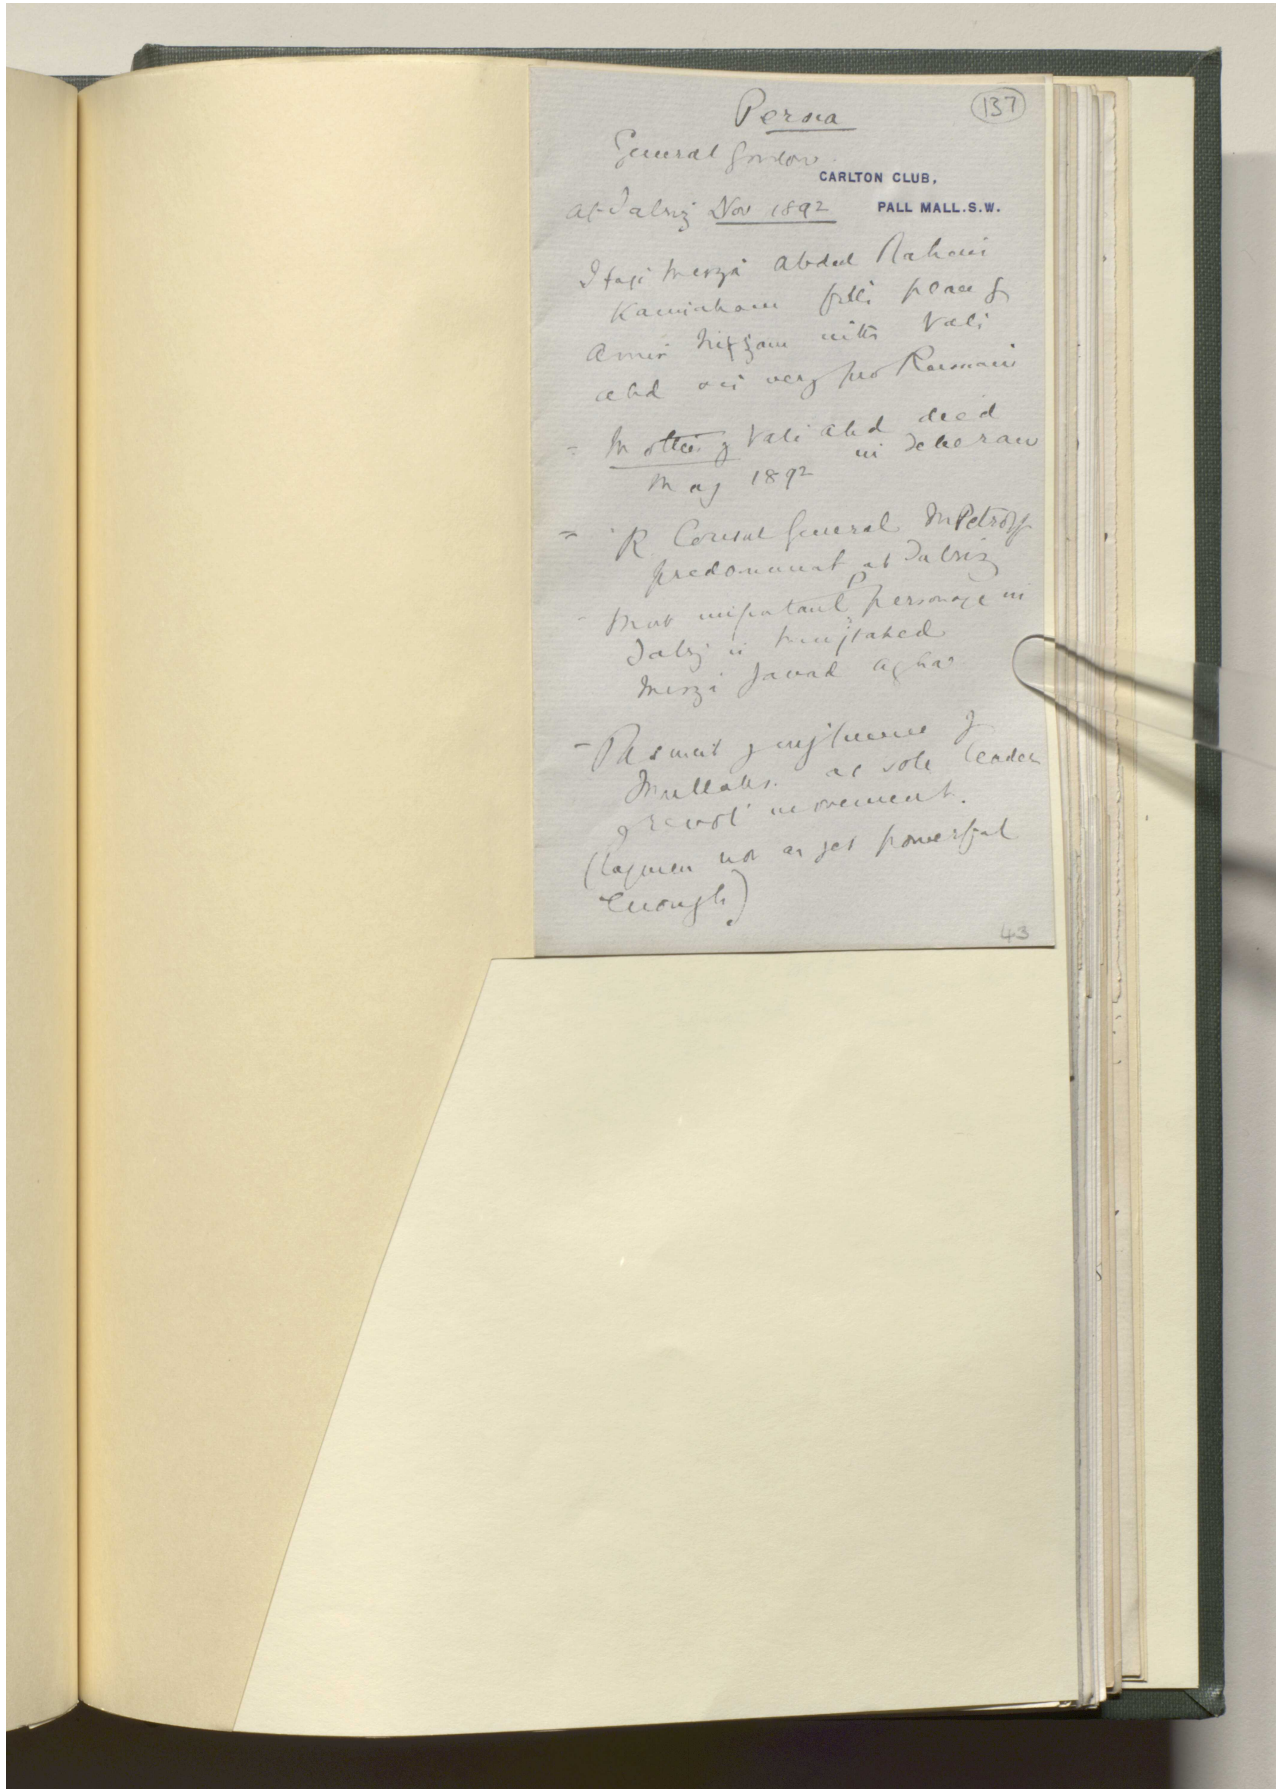 Persia
137
General Gordon.
CARLTON CLUB,
PALL MALL.S.W.
at Tabriz Nov 1892
Haji Mirza Abdul Rahim
fills place of
Amir Nizam with Vali
ahd & is very pro Russian
= Mother of Vali Ahd died
in Teheran
May 1892
= R Consul General M Petroff
predominant at Tabriz
- Most important personage in
Tabriz is Mujtahed
Mirza Javad Agha
- of influence of
Mullahs. as sole leaders
of revolt movement.
(laymen not as yet powerful
enough)
43